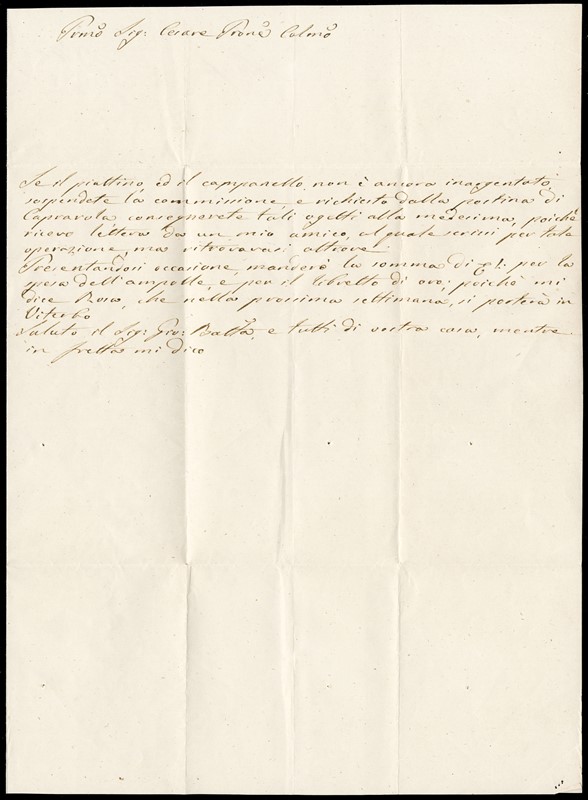 Pŕmo Sig: Cesare Prone Colmo
Se il piattino, ed il campanello, non è ancora inargentato,
sospendete la commissione, e richiesto dalla postina di
Caprarola consegnerete tali ogetti alla medesima, poiché
ricevo lettera da un mio amico, al quale scrissi per tale
operazione, ma ritrovavasi altrove.
Presentandosi occasione, manderò la somma di per la
spesa dell'ampolle, e per il libretto di oro; poichè mi
dice Rosa, che nella prossima settimana, si porterà in
Viterbo
Saluto il Sig: Gio: Batta, e tutti di vostra casa, mentre
in fretta mi dico